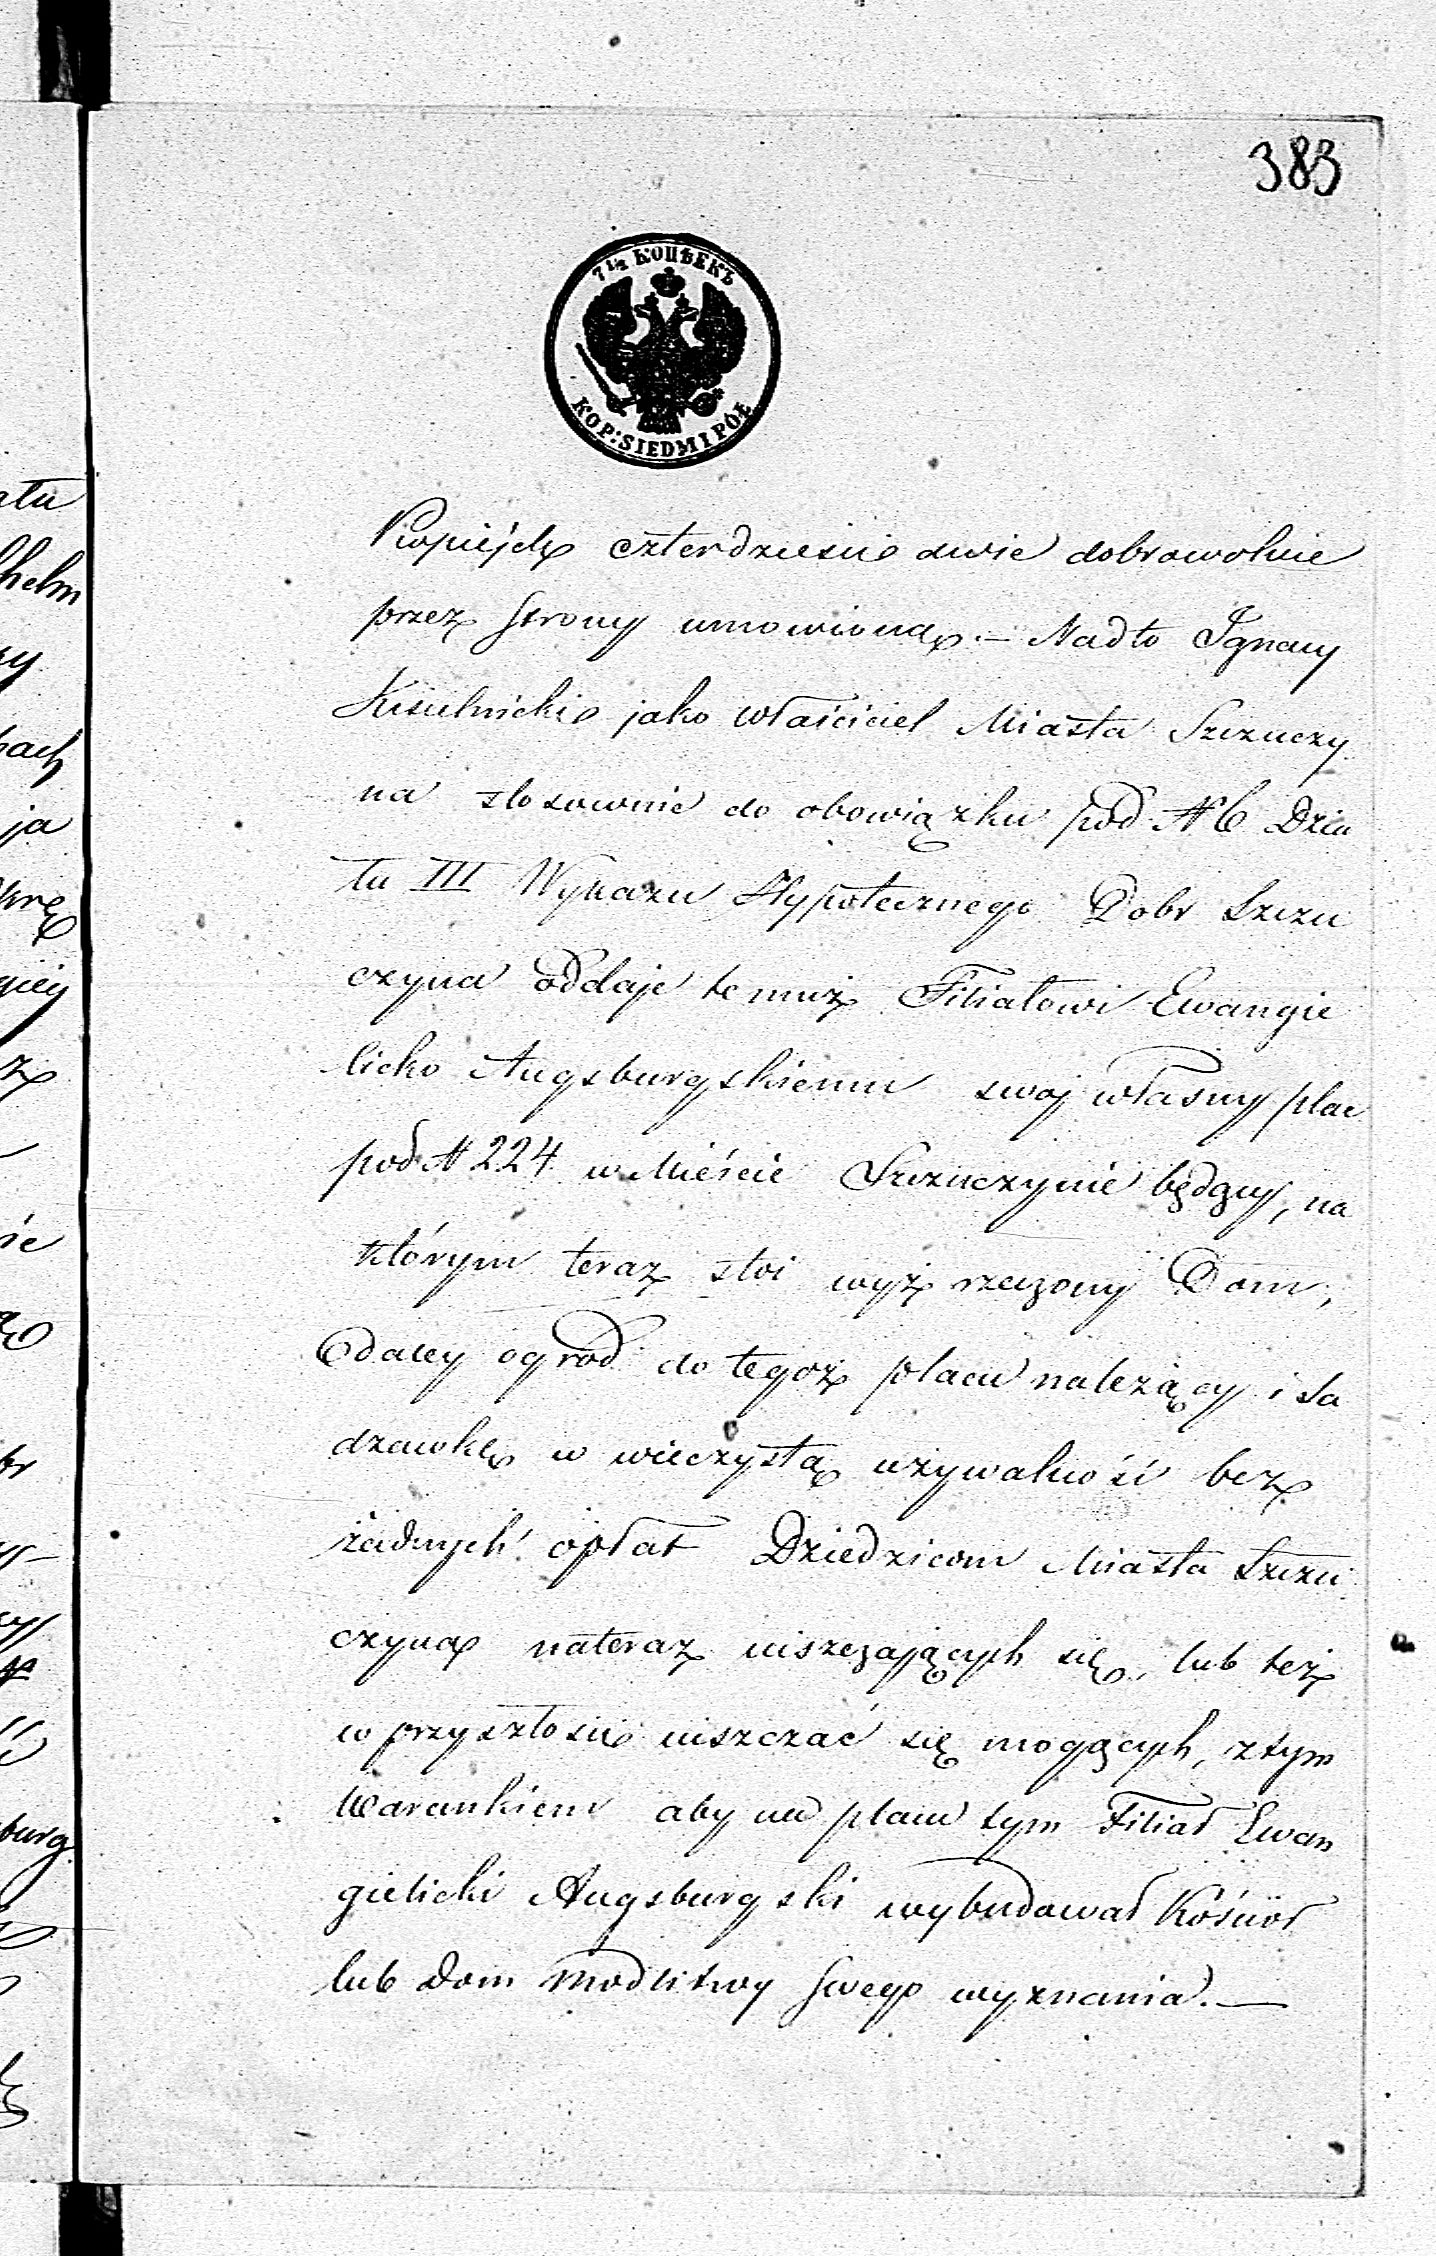 383
7 1/2 КОПѢЕКЪ
KOP: SIEDM I PÓŁ
Kopiejek czterdzieści dwie dobrowolnie
przez strony umowioną. — Nadto Ignacy
Kisielnicki jako właściciel Miasta Szczuczy
na stosownie do obowiązku pod N 6 Dzia
łu III Wykazu Hypotecznego Dobr Szczu
czyna oddaje temuż Filiałowi Ewangie
licko Augsburgskiemu swoj własny plac
pod N 224 w Mieście Szczuczynie będący, na
którym teraz stoi wyż rzeczony Dom,
daley ogród do tegoż placu należący i sa
dzawkę w wieczystą używalność bez
żadnych opłat Dziedzicom Miasta Szczu
czyna nateraz uiszczających się, lub też
w przyszłości uiszczać się mogących, z tym
warunkiem aby na placu tym Filiał Ewan
gielicki Augsburgski wybudował Kościół
lub Dom modlitwy swego wyznania. —
atu
lhelm
ry
bach
ja
giey
burg